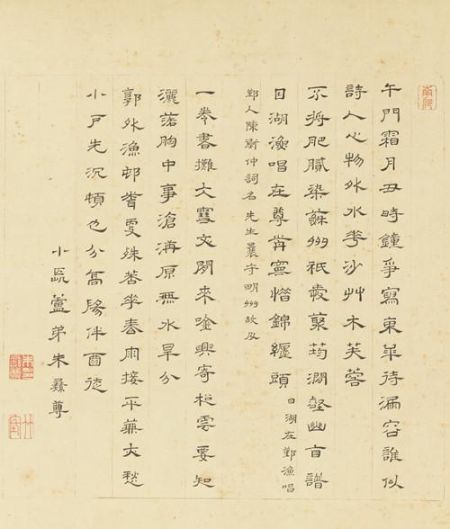 午門霜月丑時鐘爭寫東華待漏容誰似
詩人心物外水華沙艸木芙蓉
不將肥膩染蘇州祇愛叢筠澗壑幽自譜
日湖漁唱在尊前寧惜錦纏頭 日湖在鄞漁唱
鄞人陳衡仲詞名先生曩守明州故及
一卷書攤大雪文閒來唫興寄 雲要知
灑落胸中事滄海原無水旱分
郭外漁邨 殊苔華春雨接平蕪大愁
小戶先沉頓也分高陽伴酉徒
小長蘆弟朱彝尊